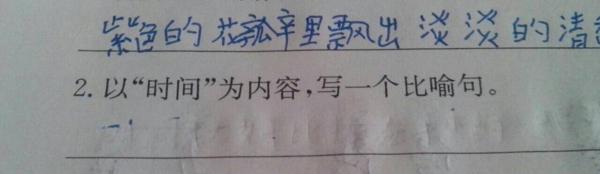 紫色的花瓣里飘出淡淡的清香
2. 以“时间”为内容，写一个比喻句。